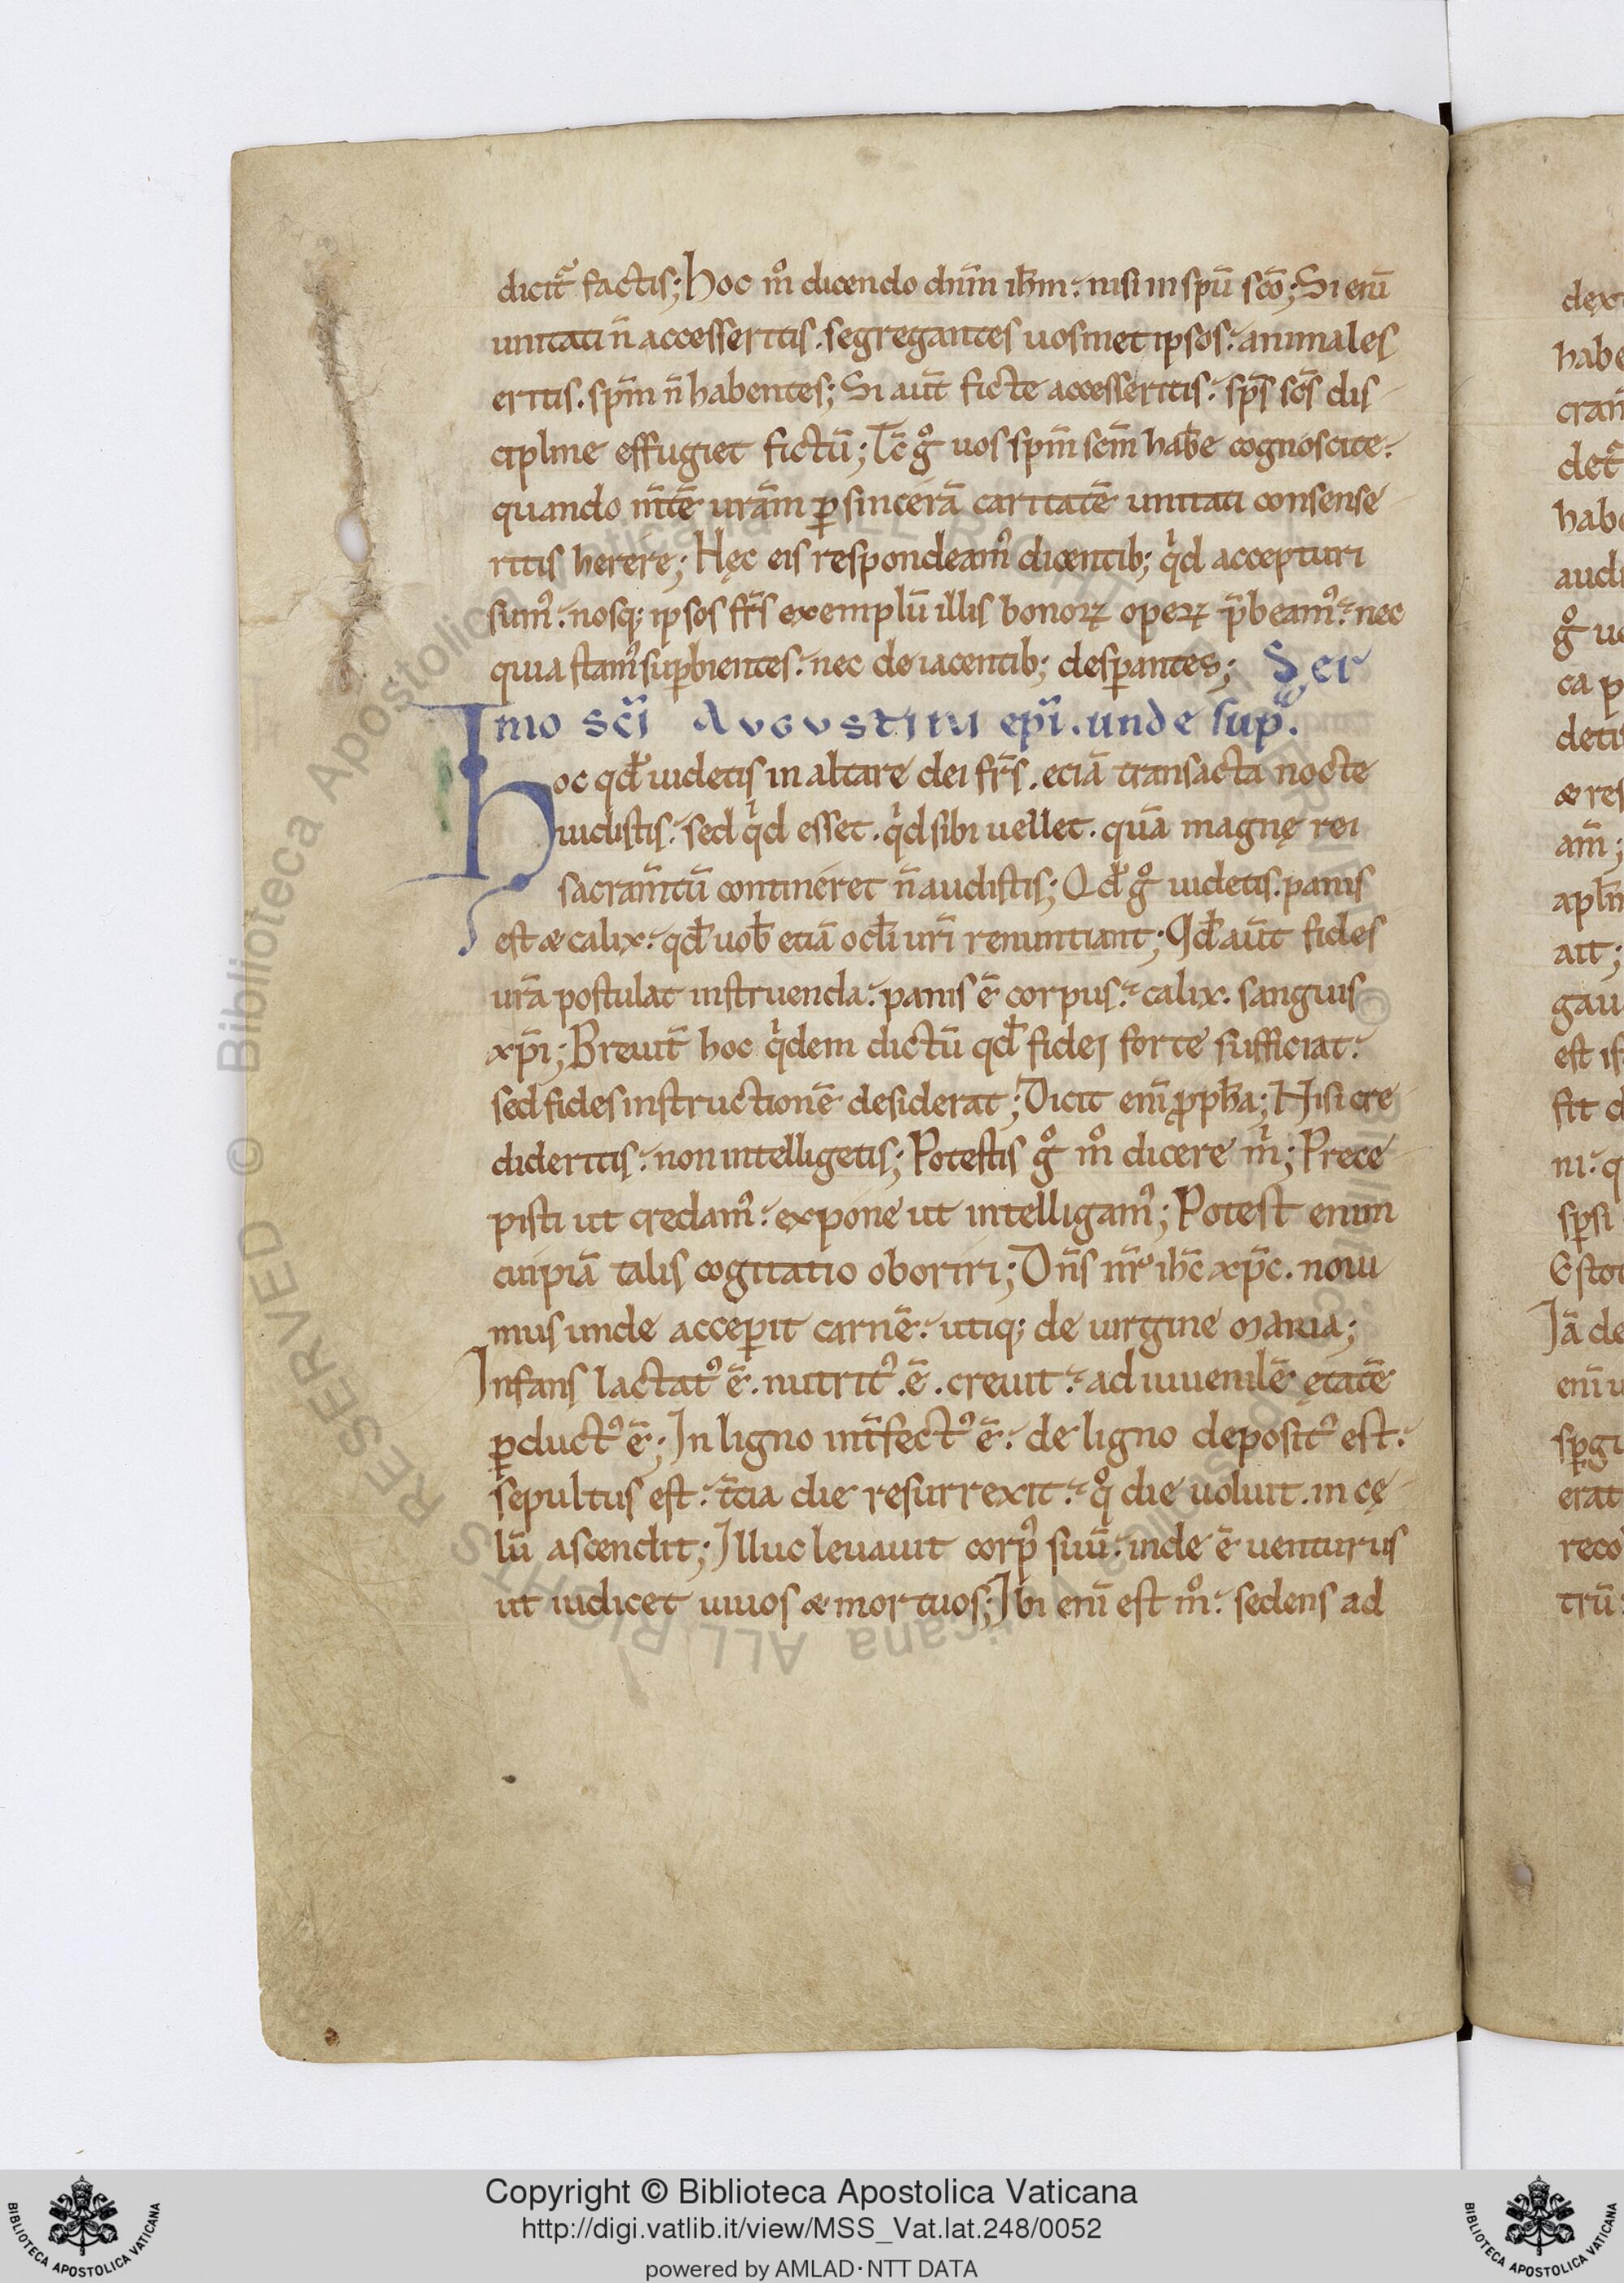 dicit᷑ factis; Hoc m̊ dicendo dn̄m ih̄m: nisi in sp̄u sc̄o; Si eni̅
unitati n̄ accesseritis. segregantes uosmet ipsos: animales
eritis. sp̄m n̄ habentes; Si aut̄ ficte accesseritis: sp̄s sc̄s dis
cipline effugiet fictū; Tc̄ g̊ uos sp̄m sc̄m hab̄e cognoscite:
quando m̄tē urām ꝑ sincerā caritatē unitati consense
ritis herere; Hęc eis respondeamꝰ dicentib; qͥd accepturi
sumꝰ: nosq; ipsos fr̄s exemplū illis bonoꝝ opeꝝ p̄beamꝰ: nec
quia stamꝰ suꝑbientes: nec de iacentib; desꝑantes; Ser
mo sc̄i Augustini ep̄i. unde supᷓ.
Hoc qd̄ uidetis in altare dei fr̄s. eciā transacta nocte
uidistis: sed qͥd esset. qͥd sibi uellet. quā magnę rei
sacram̄tū contineret n̄ audistis; Qd̄ g̊ uidetis. panis
est & calix: qd̄ uob̄ etiā oc̄li ur̄i renuntiant; Qd̄ aut̄ fides
ur̄a postulat instruenda: panis ē corpus: calix. sanguis
xp̄i; Breuit̄ hoc qͥdem dictū qd̄ fidei forte sufficiat:
sed fides instructionē desiderat; Dicit eni̅ ꝓph̄a; Nisi cre
dideritis: non intelligetis; Potestis g̊ m̊ dicere mͥ; Prece
pisti ut credamꝰ: expone ut intelligamꝰ; Potest enim
cuipiā talis cogitatio oboriri; Dn̄s nr̄ ih̄c xp̄c. noui
mus unde acceꝑit carnē: utiq; de uirgine maria;
Infans lactatꝰ ē. nutritꝰ. ē. creuit: ad iuuenilē ętatē
ꝑductꝰ ē; In ligno int̄fectꝰ ē: de ligno depositꝰ est:
sepultus est: t̄cia die resurrexit: q̊ die uoluit. in cę
lū ascendit; Illuc leuauit corpꝰ suū: inde ē uenturus
ut iudicet uiuos & mortuos; Ibi eni̅ est m̊: sedens ad
Copyright © Biblioteca Apostolica Vaticana
http://digi.vatlib.it/view/MSS_Vat.lat.248/0052
powered by AMLAD·NTT DATA